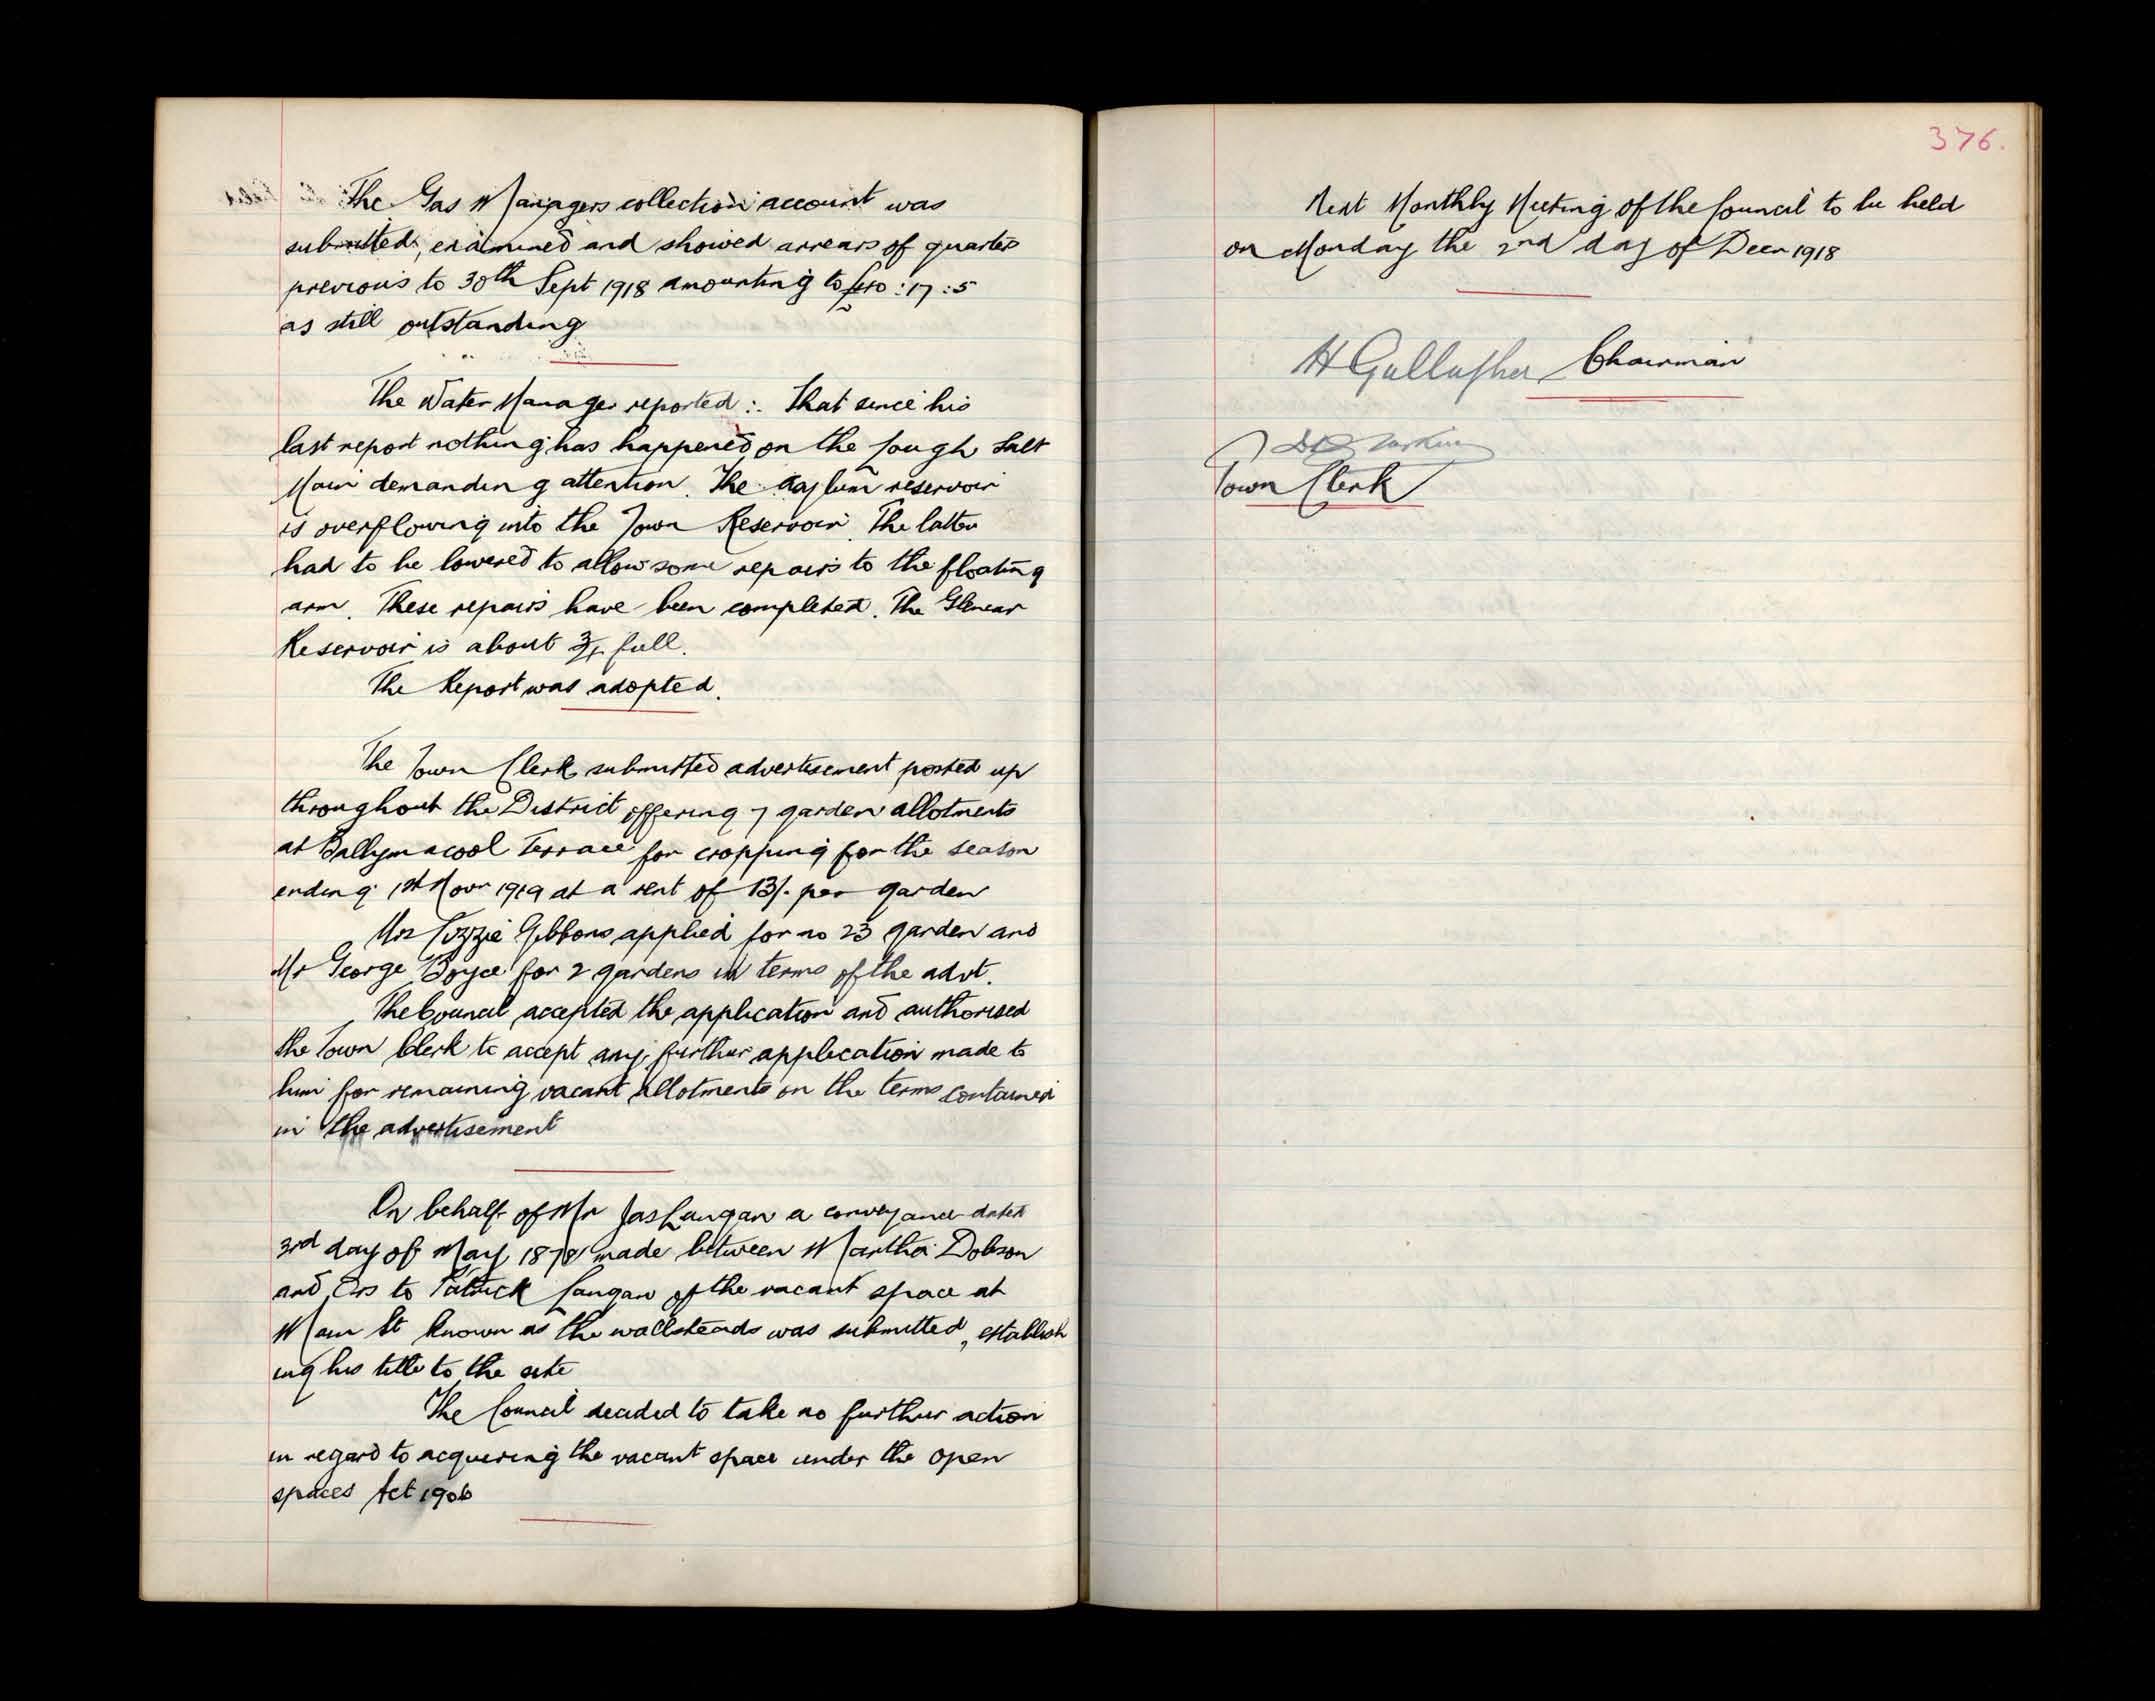 The Gas Managers collection account was
submitted, examined and showed arrears of quarter
previous to 30th Sept 1918 amounting to £10:17:5
as still outstanding
The Water Manager reported :. That since his
last report nothing has happened on the Lough Salt
Main demanding attention. The Asylum reservoir
is overflowing into the Town Reservoir. The latter
had to be lowered to allow some repairs to the floating
arm. These repairs have been completed. The Glencar
Reservoir is about 3/4 full.
The Report was adopted.
The Town Clerk submitted advertisement posted up
throughout the District offering 7 garden allotments
at Ballymacool Terrace for cropping for the season
ending 1st Novr 1919 at a rent of 13/- per garden
Mrs Lizzie Gibbons applied for no 23 garden and
Mr George Boyce for 2 gardens in terms of the advt.
The Council accepted the application and authorised
the Town Clerk to accept any further application made to
him for remaining vacant allotments on the terms contained
in the advertisement
On behalf of Mr Jas Langan a conveyance dated
3rd day of May 1878 made between Martha Dobson
and Ors to Patrick Langan of the vacant space at
Main St known as the wallsteads was submitted, establish
ing his title to the site
The Council decided to take no further action
in regard to acquiring the vacant space under the open
spaces Act 1906
376.
Next Monthly Meeting of the Council to be held
on Monday the 2nd day of Decr 1918
H Gallagher Chairman
Town Clerk